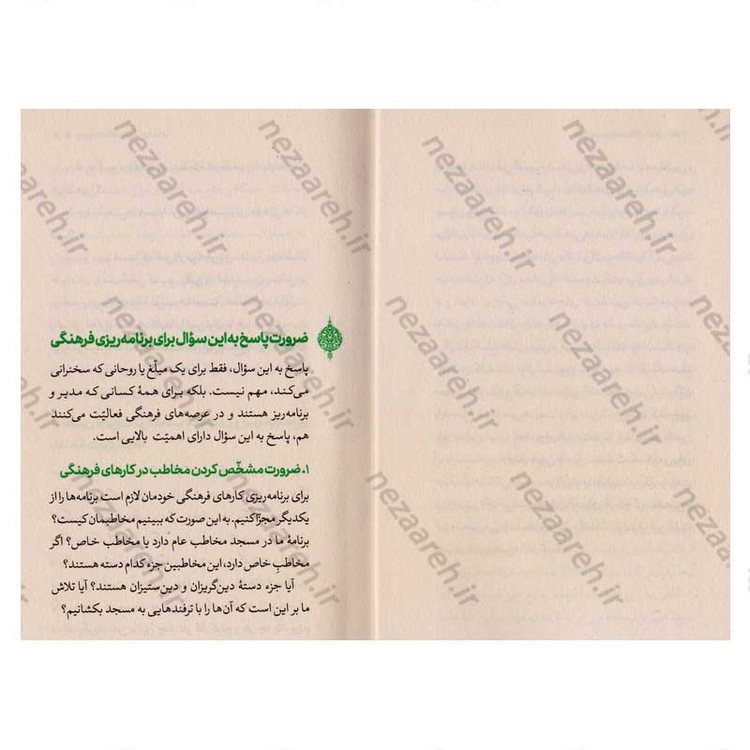 ضرورت پاسخ به این سؤال برای برنامه‌ریزی فرهنگی
پاسخ به این سؤال، فقط برای یک مبلّغ یا روحانی که سخنرانی
می‌کند، مهم نیست. بلکه برای همهٔ کسانی که مدیر و
برنامه‌ریز هستند و در عرصه‌های فرهنگی فعالیّت می‌کنند
هم، پاسخ به این سؤال دارای اهمیّت بالایی است.
۱. ضرورت مشخّص کردن مخاطب در کارهای فرهنگی
برای برنامه‌ریزی کارهای فرهنگی خودمان لازم است برنامه‌ها را از
یکدیگر مجزّا کنیم. به این صورت که ببینیم مخاطبمان کیست؟
برنامهٔ ما در مسجد مخاطب عام دارد یا مخاطب خاص؟ اگر
مخاطبِ خاص دارد، این مخاطبین جزء کدام دسته هستند؟
آیا جزء دستهٔ دین‌گریزان و دین‌ستیزان هستند؟ آیا تلاش
ما بر این است که آن‌ها را با ترفندهایی به مسجد بکشانیم؟
nezaareh.ir
nezaareh.ir
nezaareh.ir
nezaareh.ir
nezaareh.ir
nezaareh.ir
nezaareh.ir
nezaareh.ir